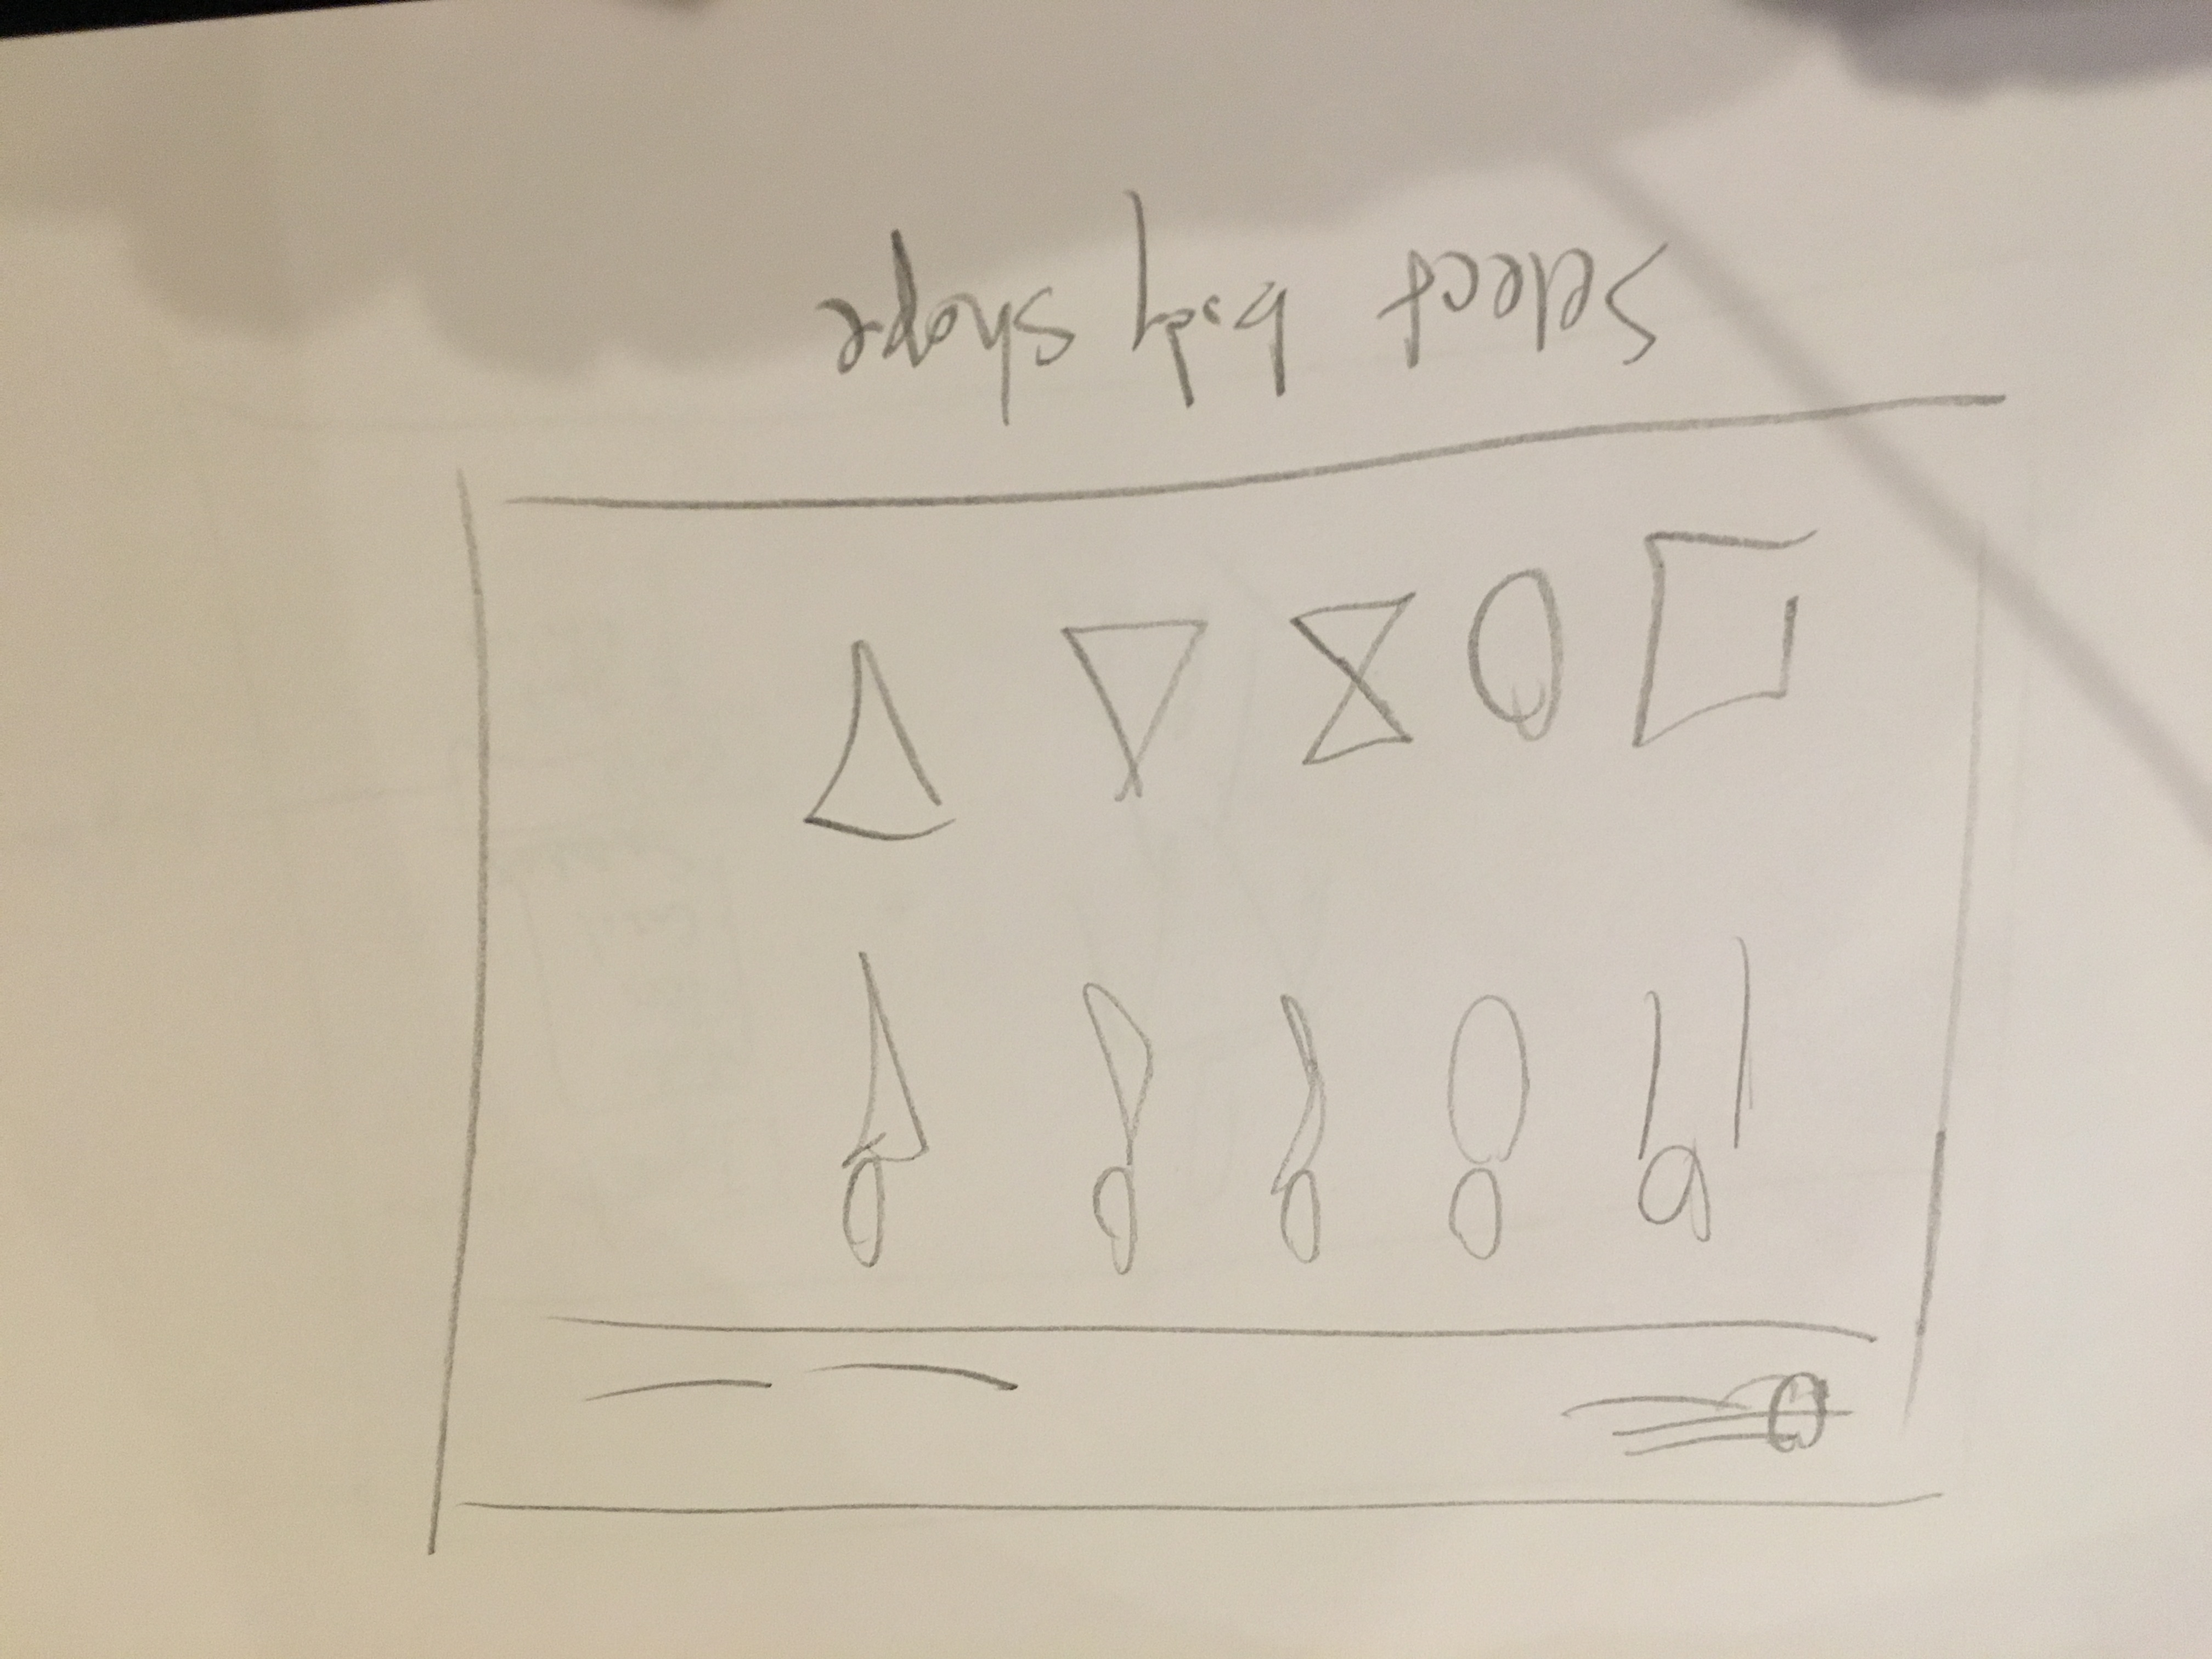 Select body shape